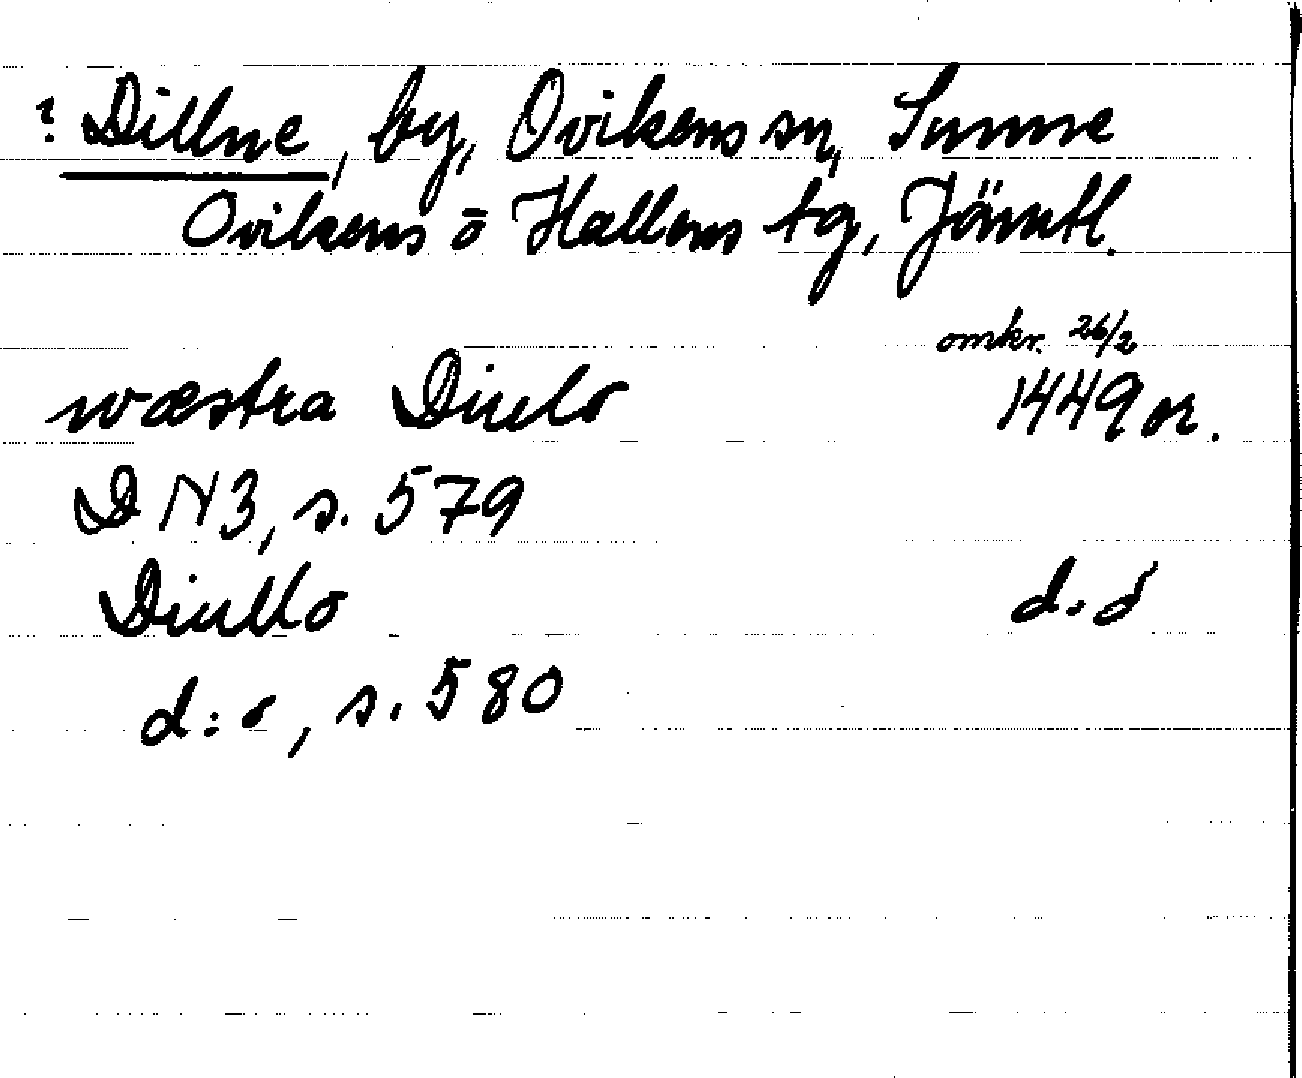 ? Dillne, by, Ovikens sn, Sunne
Ovikens o Hallens tg, Jämtl.
omkr. 26/2
wæstra Diulo 1449 or.
DN 3, s. 579
Diullo d.o
d:o, s. 580